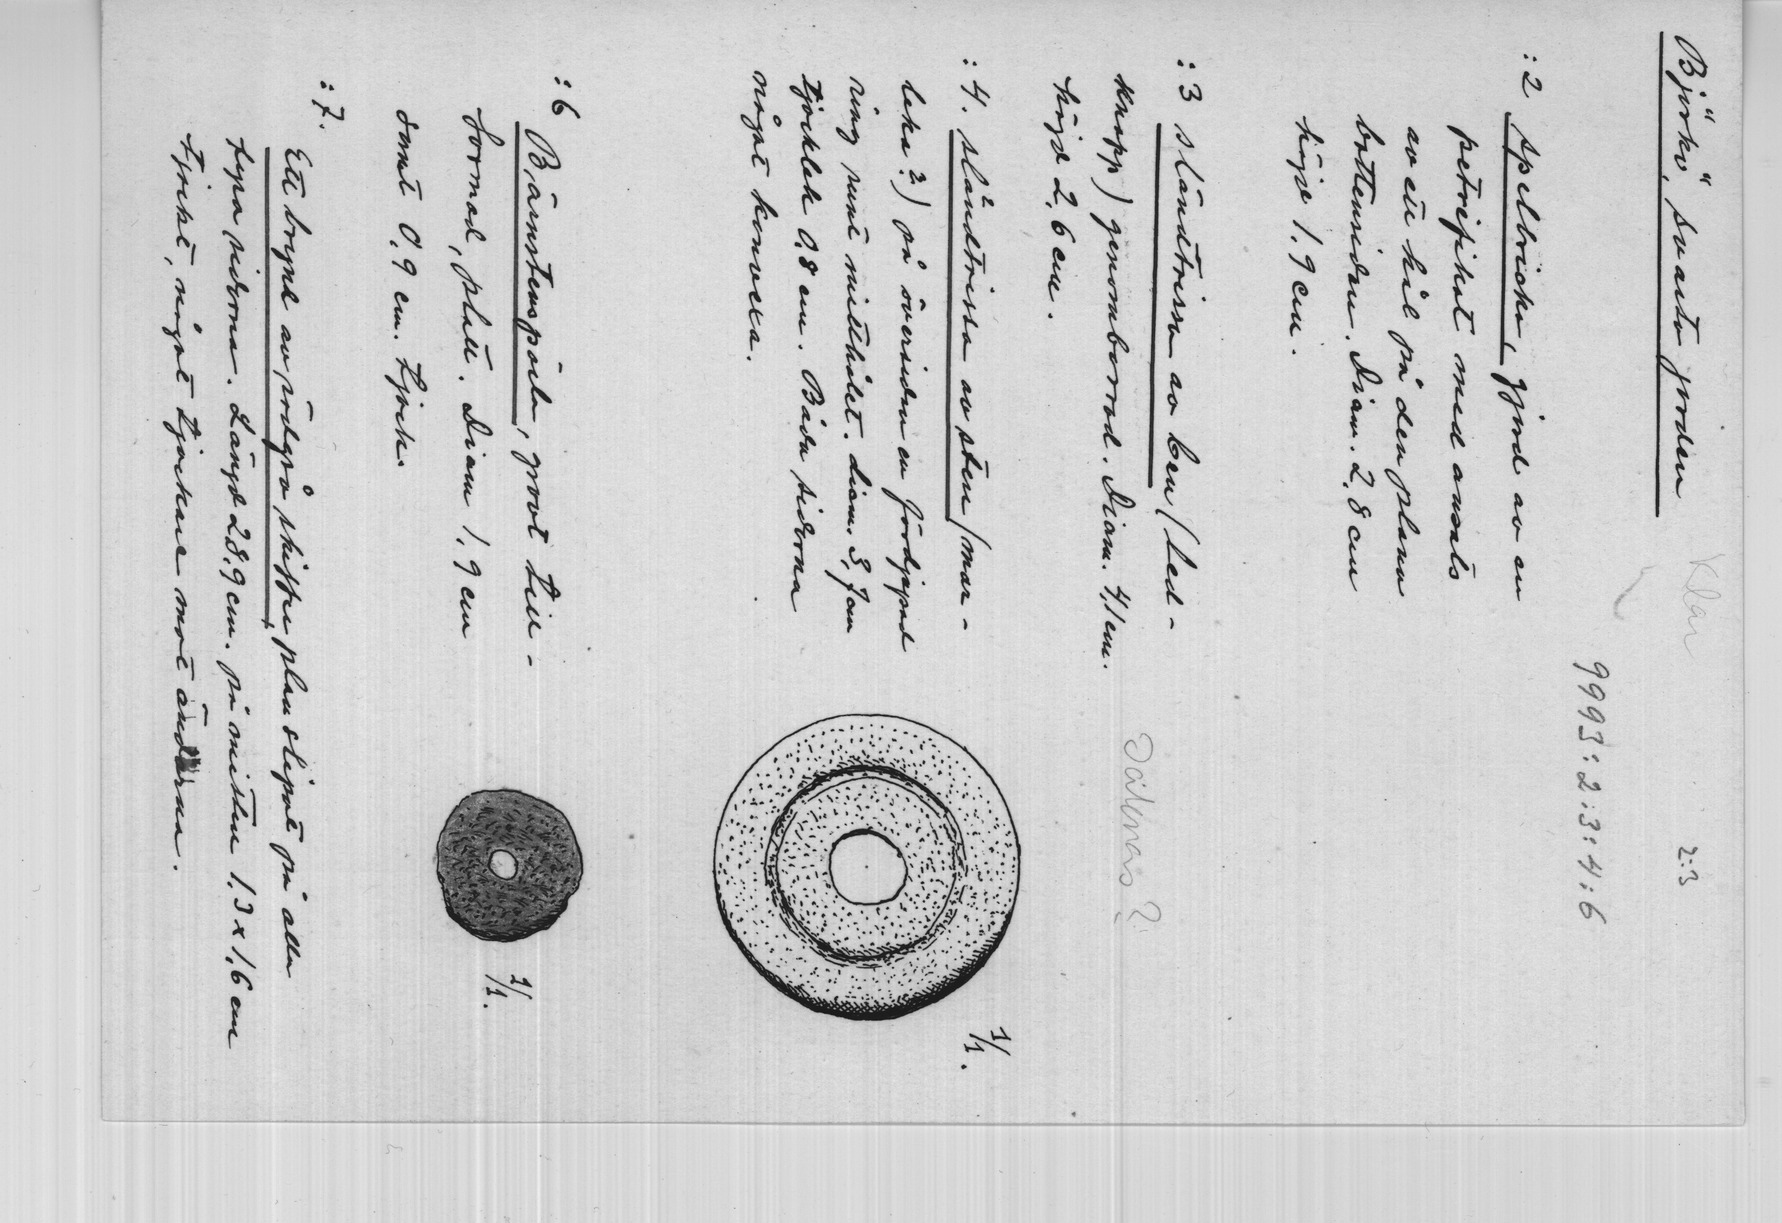 Björkö, svarta jorden
Klar
2:3
9993:2:3:4:6
:2 Spelbricka, gjord av en
petrifikat med ansats
av ett hål på den plana
bottensidan. Diam. 2,8 cm
höjd 1.9 cm.
:3 sländtrissa av ben (led-
knapp) genomborrad. Diam. 4,1 cm.
höjd 2,6 cm.
:4. sländtrissa av sten (mar-
leka?) på översidan en fördjupad
ring runt mitthålet. diam. 3,7 cm
tjocklek 0,8 cm. Båda sidorna
något konvexa.
1/1.
:6 Bärnstenspärla, grovt till-
formad, platt. Diam 1,9 cm
samt 0,9 cm. tjock.
1/1.
:7.
Ett bryne av rödgrå skiffer plan slipat på alla
fyra sidorna. Längd 28,9 cm. på mitten 1.3 x 1,6 cm
tjockt, något tjockare mot ändarna.